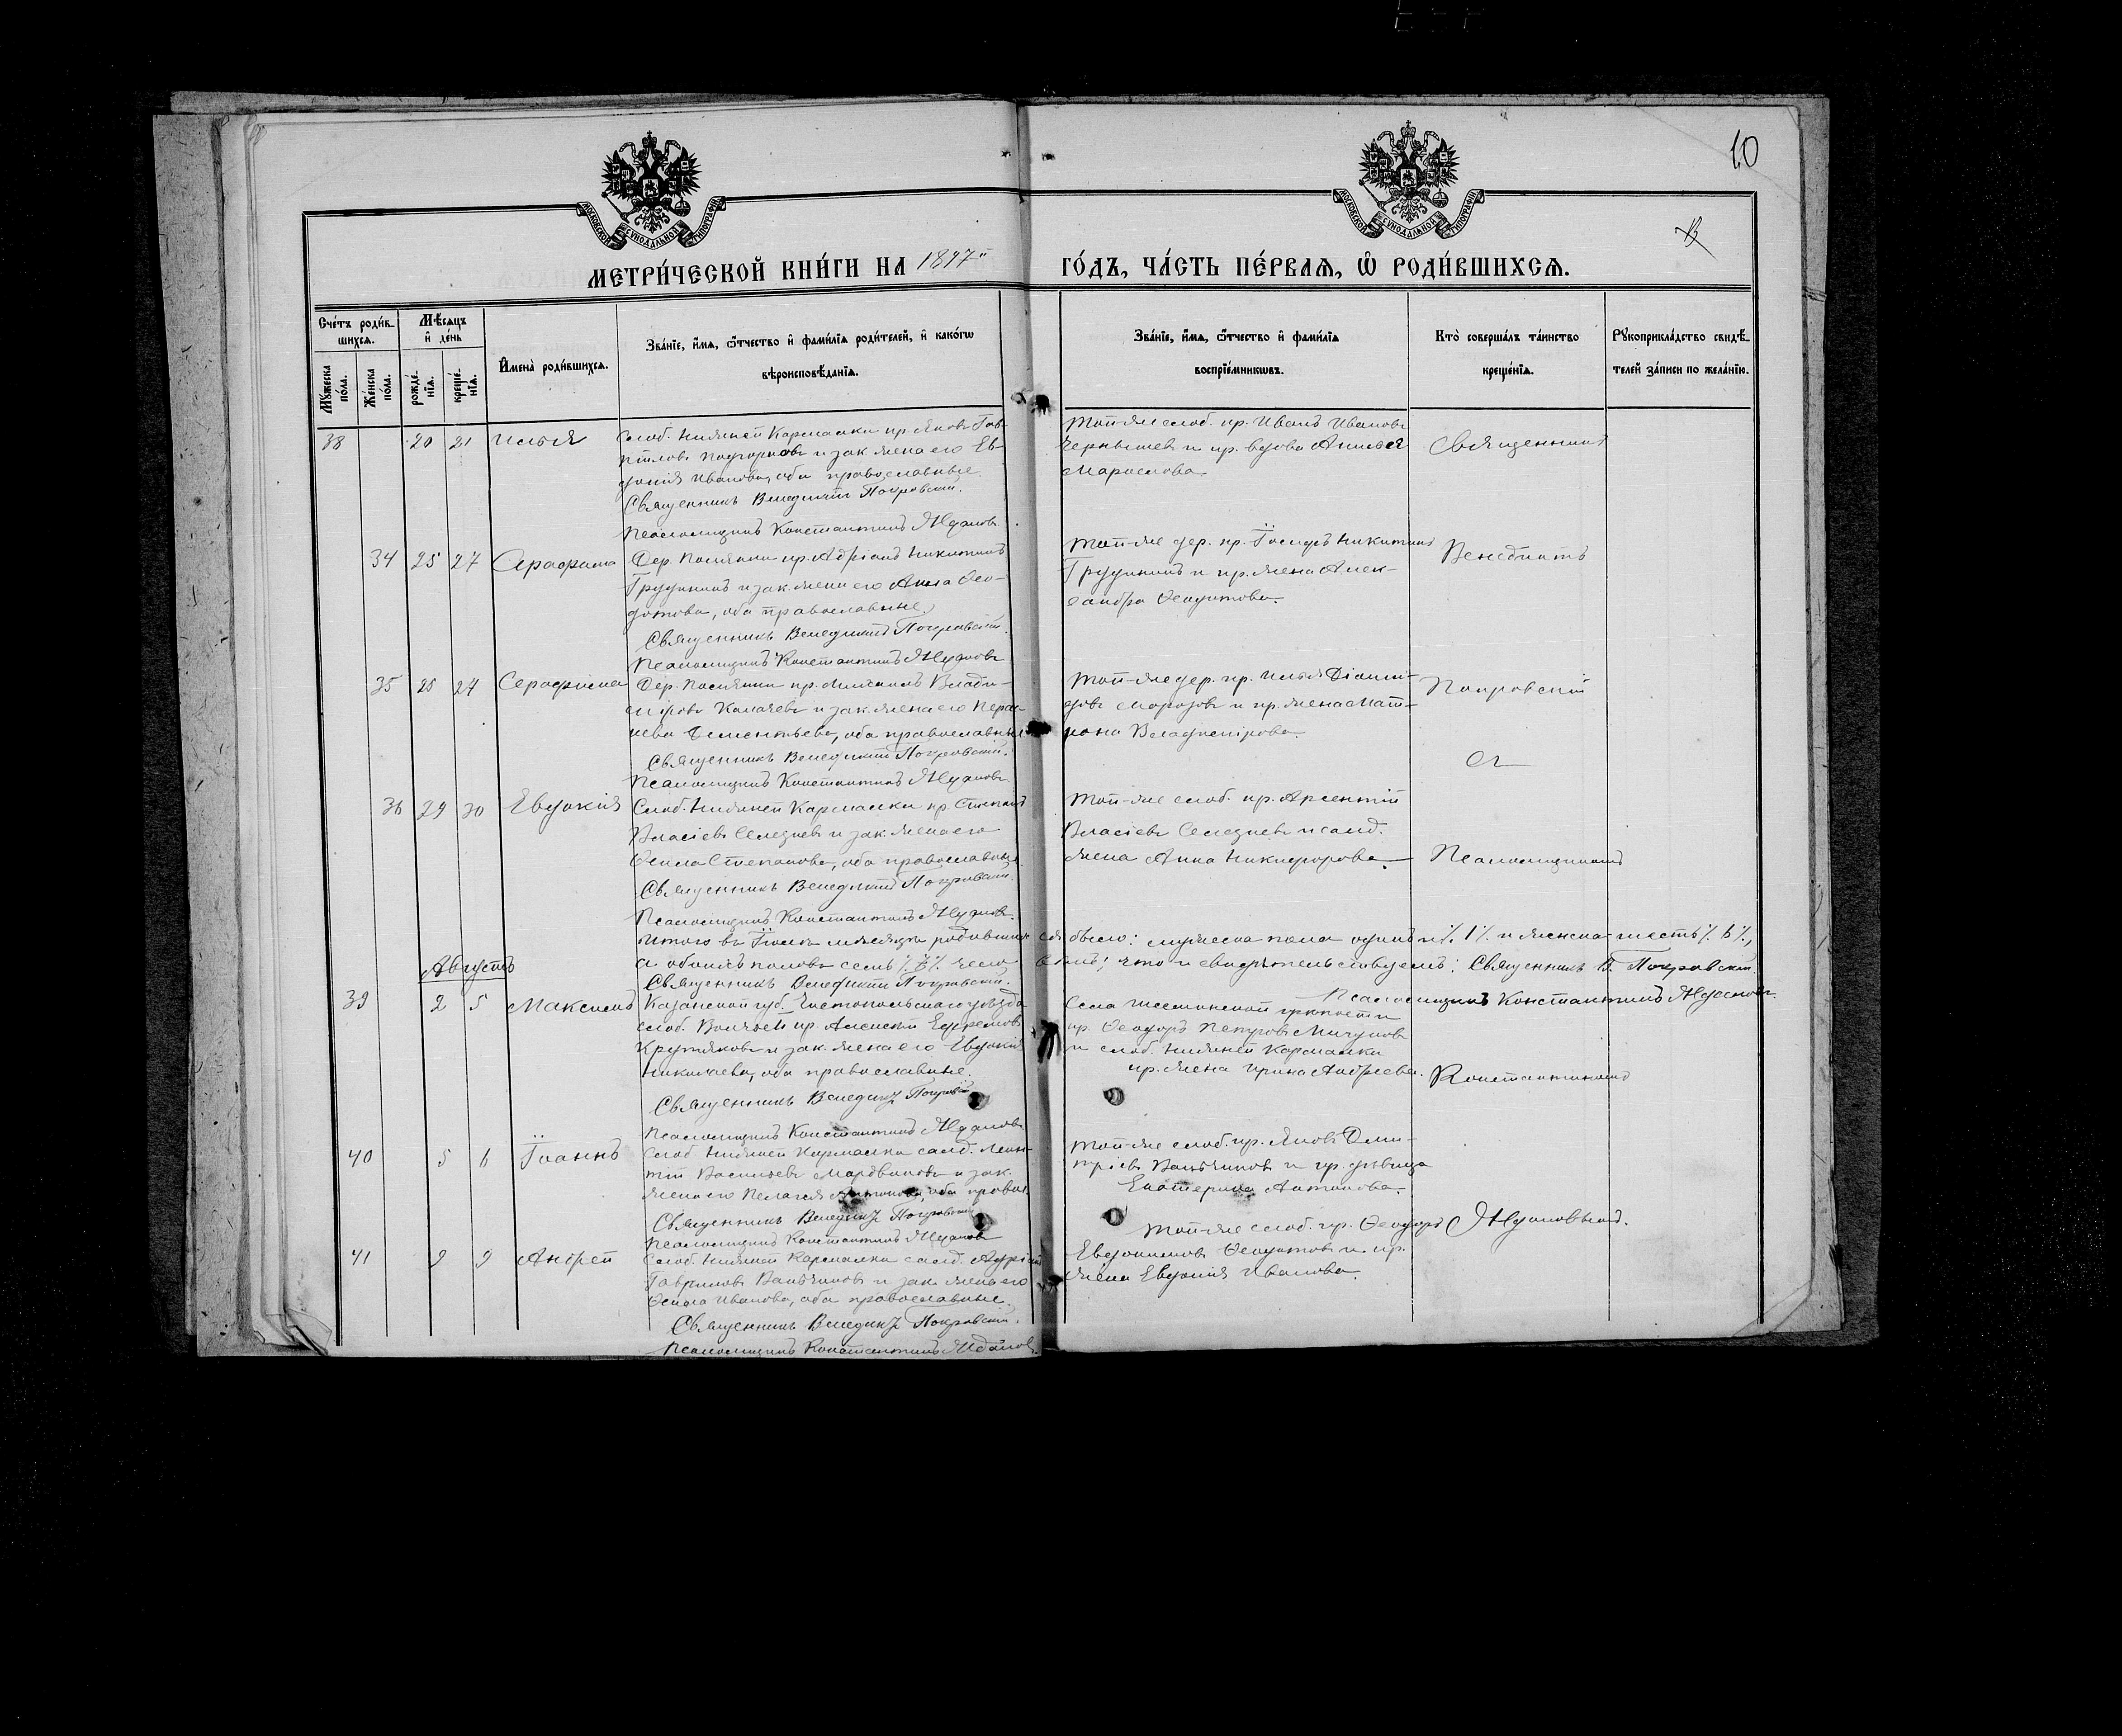 10
13
МОСКОВСКОЙ СѴНОДАЛЬНОЙ ТИПОГРАФІИ
МОСКОВСКОЙ СѴНОДАЛЬНОЙ ТИПОГРАФІИ
МЕТРИ́ЧЕСКОЙ КНИ́ГИ НА 1897
ГО́ДЪ, ЧА́СТЬ ПЕ́РВАЯ, Ѿ РОДИ́ВШИХСЯ.
Сче́тъ роди́в-
шихся.
Мѣ́сяцъ
и҆ де́нь
Му́жеска по́ла.
Же́нска по́ла.
рожде́-нїя.
креще́-нїя.
И҆мена̀ роди́вшихся.
Зва́нїе, и҆́мя, ѻ҆́тчество и҆ фами́лїя роди́телей, и҆ како́гѡ
вѣроисповѣ́данїя.
Зва́нїе, и҆́мя, ѻ҆́тчество и҆ фами́лїя
воспрїе́мникѡвъ.
Кто̀ соверша́лъ та́инство
креще́нїя.
Рꙋкоприкла́дство свидѣ́-
телей за́писи по жела́нїю.
38 20 21 Илья
Слоб. Нижней Кармалки кр. Яковъ Гав-
риловъ и зак. жена его Ев-
докія Иванова, оба православные.
Священникъ Венедиктъ Покровскій.
Псаломщикъ Константинъ Ждановъ
Той-же слоб. кр. Иванъ Ивановъ
Чернышев и кр. вдова
Священникъ
34 25 27 Серафима
Дер. кр. Адріанъ Никитинъ
Грудинъ и зак. жена его Анна Ѳео-
дотова, оба православные.
Священникъ Венедиктъ Покровскій.
Псаломщикъ Константинъ Ждановъ
Той-же дер. кр. Іосифъ Никитинъ
и кр. жена Алек-
сандра Ѳеодотова.
Венедиктъ
35 25 27 Серафима
Дер. кр. Влади-
міровъ и зак. жена его Параске-
ева Дементьева, оба православные
Священникъ Венедиктъ Покровскій.
Псаломщикъ Константинъ Ждановъ
Той-же дер. кр. Илья Діоми-
довъ Морозовъ и кр. жена Мат-
рона Владимірова.
Покровскій
съ
36 29 30 Евдокія
Слоб. Нижней Кармалки кр. Степанъ
Власіевъ Селезнев и зак. жена его
Ѳекла Степанова, оба православные
Священникъ Венедиктъ Покровскій.
Псаломщикъ Константинъ Ждановъ.
Той-же слоб. кр. Арсентій
Власіевъ Селезнев и солд.
жена Анна Никифорова.
Псаломщикомъ
Итого въ Іюлѣ мѣсяцѣ родившихся было: мужеска пола одинъ ٪ 1 ٪ и женска шесть ٪ 6 ٪,
а обоихъ половъ семь ٪ 7 ٪ человѣкъ; что и свидѣтельствуемъ: Священникъ В. Покровскій.
Священникъ Венедиктъ Покровскій.
Псаломщикъ Константинъ Ждановъ.
Августъ
39 2 5 Максимъ
Казанской губ. Чистопольскаго уѣзда
слоб. Волчьей кр. Алексѣй Ефремовъ
и зак. жена его Евдокія
Николаева, оба православные.
Священникъ Венедиктъ Покровскій
Псаломщикъ Константинъ Ждановъ
Села Шешминской крѣпости
кр. Ѳеодоръ Петровъ Мичуринъ
и слоб. Нижней Кармалки
кр. жена Ирина Андреева.
Константиномъ
40 5 6 Іоаннъ
Слоб. Нижней Кармалки солд. Леон-
тій Васильевъ Мордвиновъ и зак.
жена его Пелагея Антонова, оба правос.
Священникъ Венедиктъ Покровскій
Псаломщикъ Константинъ Ждановъ
Той-же слоб. кр. Яковъ Дми-
тріевъ и кр. дѣвица
Екатерина Антонова.
Ждановымъ.
41 9 9 Андрей
Слоб. Нижней Кармалки солд. Андрей
Гавриловъ и зак. жена его
Ѳекла Иванова, оба православные.
Священникъ Венедиктъ Покровскій.
Псаломщикъ Константинъ Ждановъ
Той-же слоб. кр. Ѳеодоръ
Евдокимовъ Ѳедотовъ и кр.
жена Евдокія Иванова.